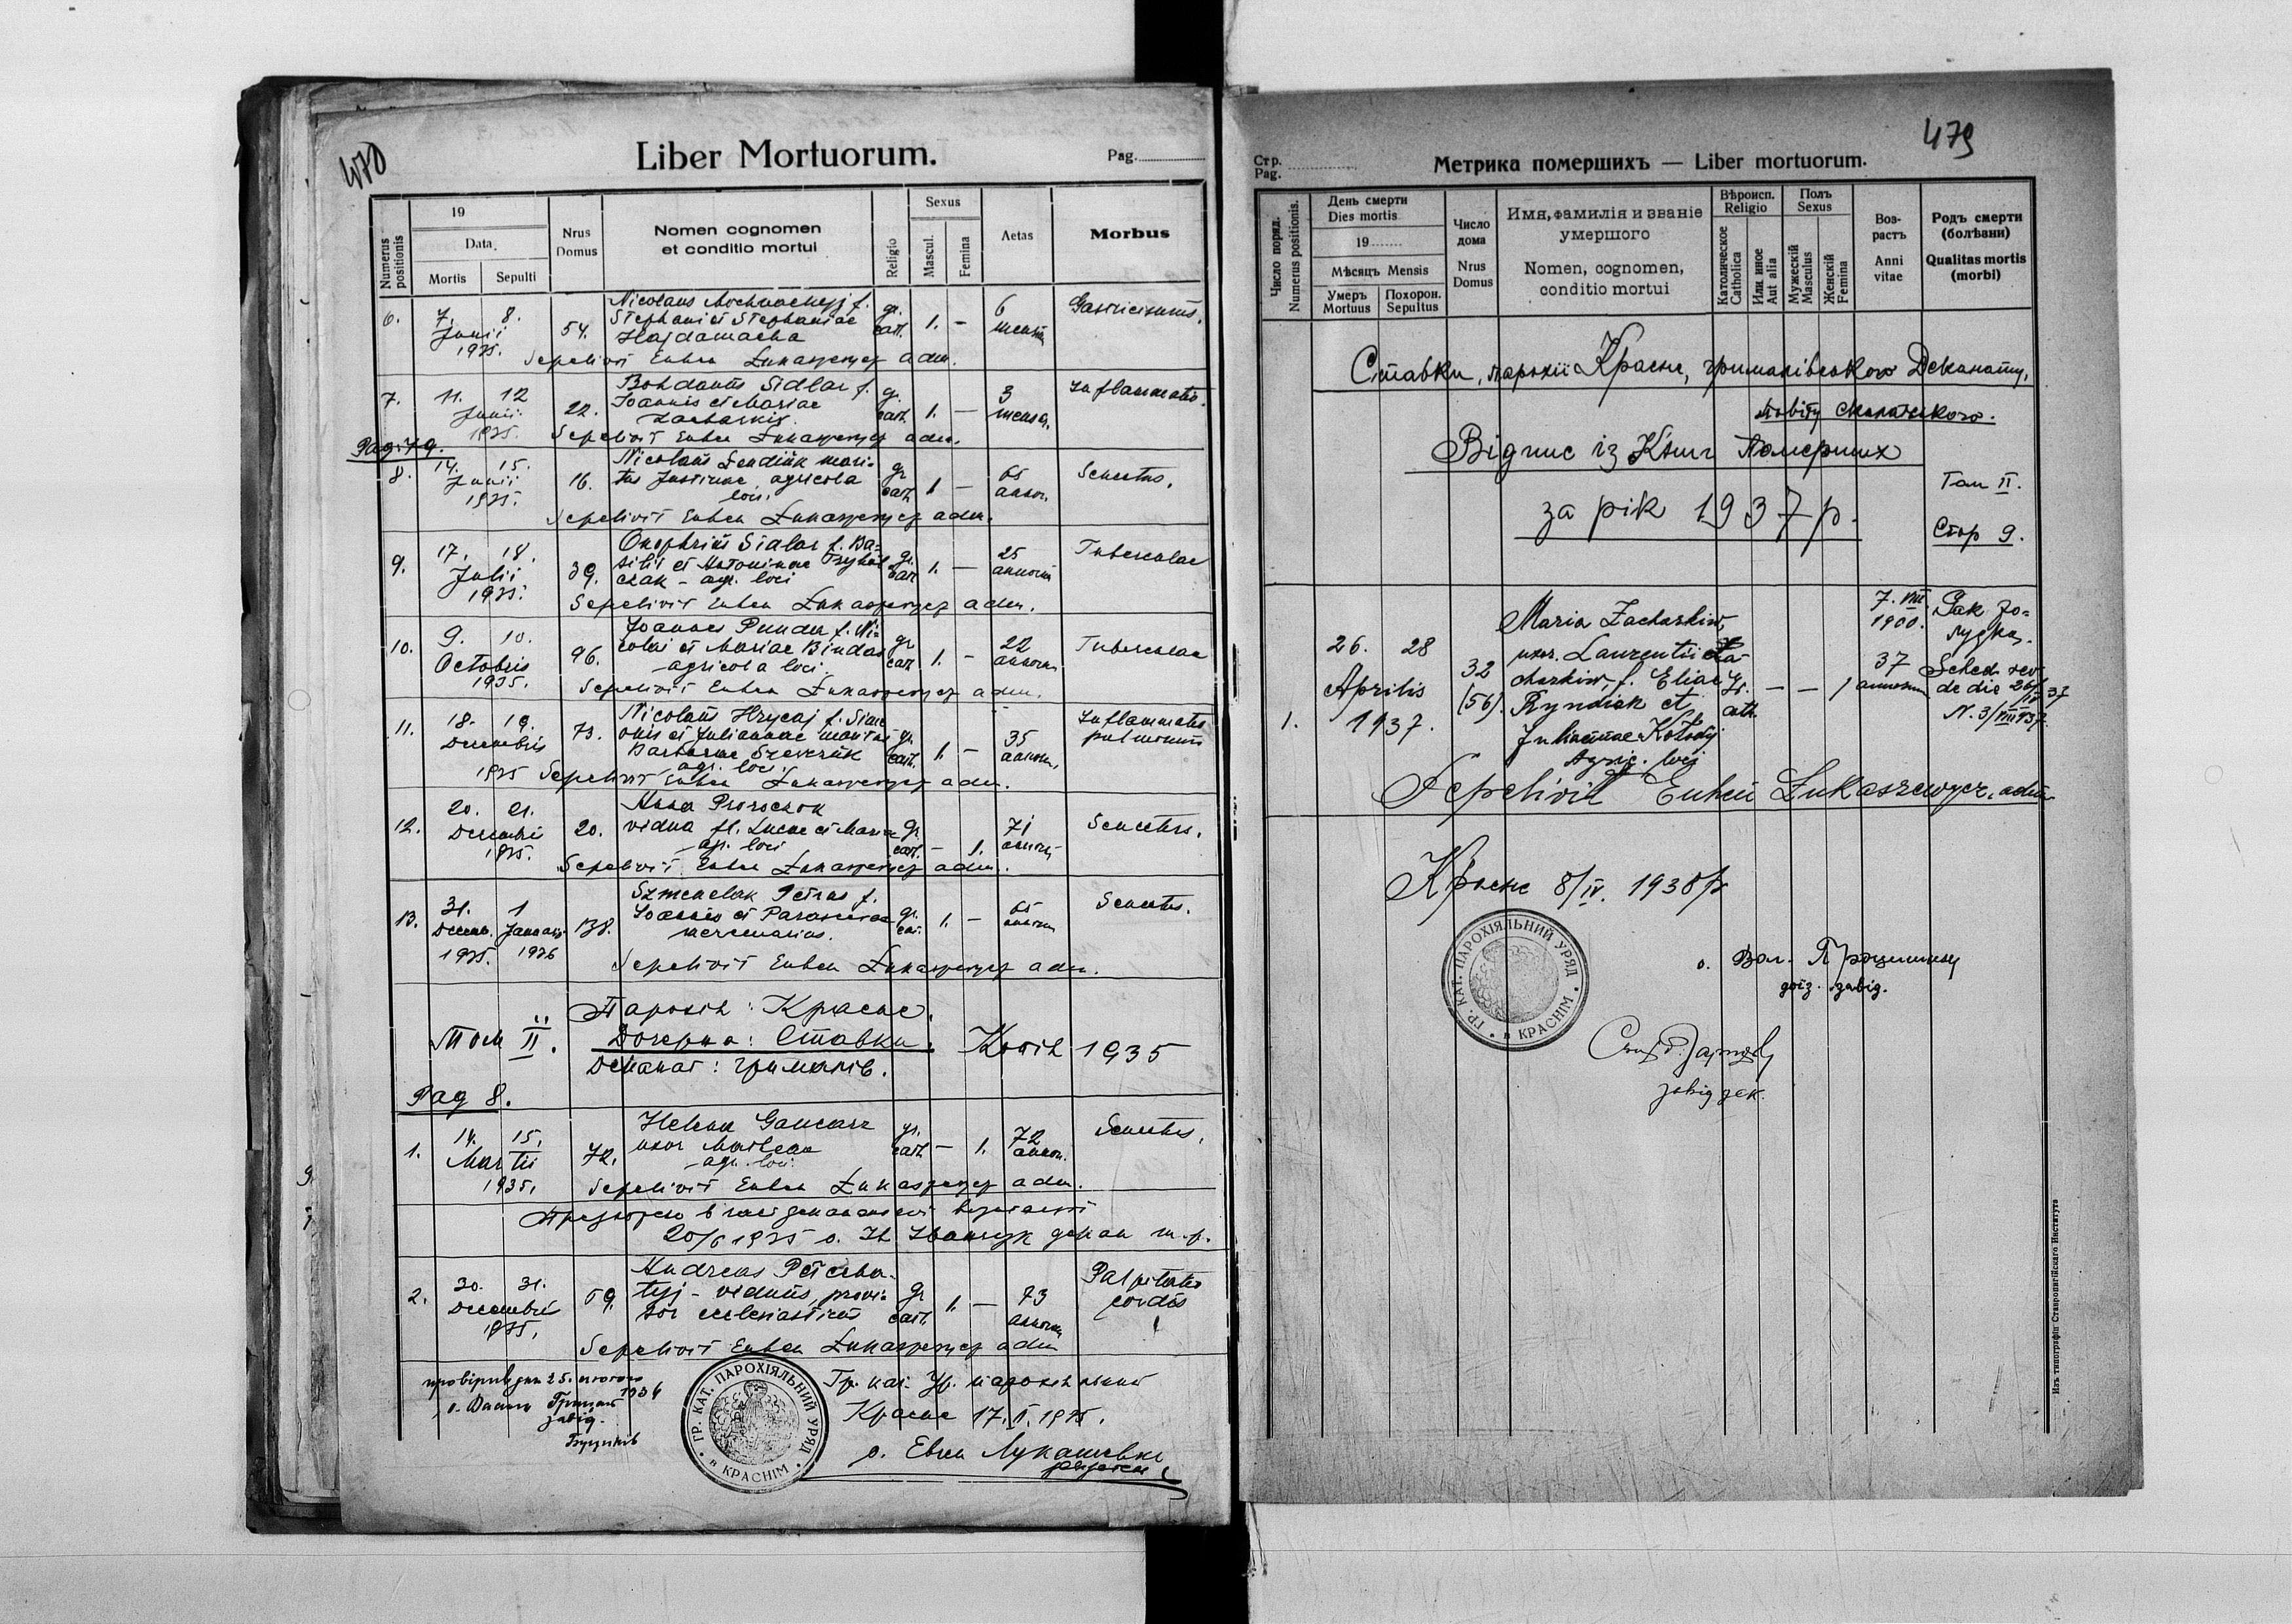 470
Liber Mortuorum.
Pag.
Numerus positionis
19
Data
Mortis
Sepulti
Nrus Domus
Nomen cognomen
et conditio mortui
Religio
Sexus
Mascul.
Femina
Aetas
Morbus
6. 7. 8. Junii 1935. 54.
Nicolaus f.
Stephani et Stephaniae
Hajdamacha
gr. cath. 1. – 6 mensium
Gastricismus.
Sepelivit Euhen Łukaszewycz adm.
7. 11. 12 Junii 1935. 22.
Bohdanus Sidlar f.
Joannis et Mariae
Zacharkiw
gr. cath. 1. – 3 mensium
Inflammatio.
Sepelivit Euhen Łukaszewycz adm.
Pag. 79.
8. 14. 15. Junii 1935. 16.
Nicolaus Lendiuk mari-
tus Justinae agricola
loci.
gr. cath. 1 – 65 annor.
Senectus.
Sepelivit Euhen Łukaszewycz adm.
9. 17. 18. Julii 1935. 39.
Onophrius Sidlar f. Ba-
silii et Antoninae
agr. loci
gr. cath. 1. – 25 annorum
Tuberculae
Sepelivit Euhen Łukaszewycz adm.
10. 9. 10. Octobris 1935. 96.
Joannes Pundu f. Ni-
colai et Mariae Bindas
agricola loci
gr. cath. 1. – 22 annorum
Tuberculae
Sepelivit Euhen Łukaszewycz adm.
11. 18. 19. Decembris 1935 73.
Nicolaus Hrycaj f. Sime-
onis et Juliannae maritus
Barbarae Szewczuk
agr. loci.
gr. cath. 1. – 35 annorum
Inflammatio
pulmonum
Sepelivit Euhen Łukaszewycz adm.
12. 20. 21. Decembris 1935. 20.
Anna Proroczok
vidua fil. Lucae et Mariae
agr. loci
gr. cath. – 1. 71 annorum
Senectus.
Sepelivit Euhen Łukaszewycz adm.
13. 31. Decemb. 1935. 1 Januarii 1936 138.
Szmenelak Petrus f.
Joannis et Parasceviae
mercenarius.
gr. cat. 1. – 65 annorum
Senectus.
Sepelivit Euhen Łukaszewycz adm.
Парохія: Красне.
Том II. Дочерна: Ставки. Копія 1935
Деканат: Грималів.
Pag 8.
1. 14. 15. Martii 1935. 72.
Helena Gancarz
uxor
agr. loci.
gr. cath – 1. 72 annor.
Senectus.
Sepelivit Euhen Łukaszewycz adm.
20/6 1935 о. декан m.p.
2. 30. 31. Decembris 1935. 69.
Andreas
tyj – viduus, provi-
sor ecclesiasticus
gr. cath. 1. – 73 annorum
Palpitatio
cordis
Sepelivit Euhen Łukaszewycz adm
провірив дня 25. лютого
1936
завід.
ГР. КАТ. ПАРОХІЯЛЬНИЙ УРЯД
в КРАСНІМ
Гр. кат. Ур. парохіяльний
Красне 17. 1935.
о. Евген Лукашевич
479
Стр.
Pag.
Метрика помершихъ — Liber mortuorum.
Число поряд.
Numerus positionis.
День смерти
Dies mortis
19
Мѣсяцъ Mensis
Умеръ
Mortuus
Похорон.
Sepultus
Число
дома
Nrus
Domus
Имя, фамилія и званіе
умершого
Nomen, cognomen,
conditio mortui
Вѣроисп.
Religio
Католическое
Catholica
Или иное
Aut alia
Полъ
Sexus
Мужескій
Masculus
Женскій
Femina
Воз-
растъ
Anni
vitae
Родъ смерти
(болѣзни)
Qualitas mortis
(morbi)
Ставки, парохії Красне, грималівського Деканату,
повіту скалатського.
Відпис із Книг Померших
Том II.
за рік 1937 р.
Стор 9.
1. 26. 28 Aprilis 1937. 32 (56).
Maria Zacharkiw,
uxor. Laurentii Za-
charkiw, f. Eliae
Ryndiak et
Juliannae Kołodij
Agric. loci
gr. cath. – – 1
7. VIII. 1900.
37 annorum
Рак жо-
лудка.
Sched. rev.
de die 26/IV 37
N. 3/VIII 37.
Sepelivit Euhen Łukaszewycz, adm
Красне 8/IV. 1938 р
ГР. КАТ. ПАРОХІЯЛЬНИЙ УРЯД
в КРАСНІМ
о. Вол.
доїз. завід.
завід дек.
Изъ типографіи Ставропигійскаго Института